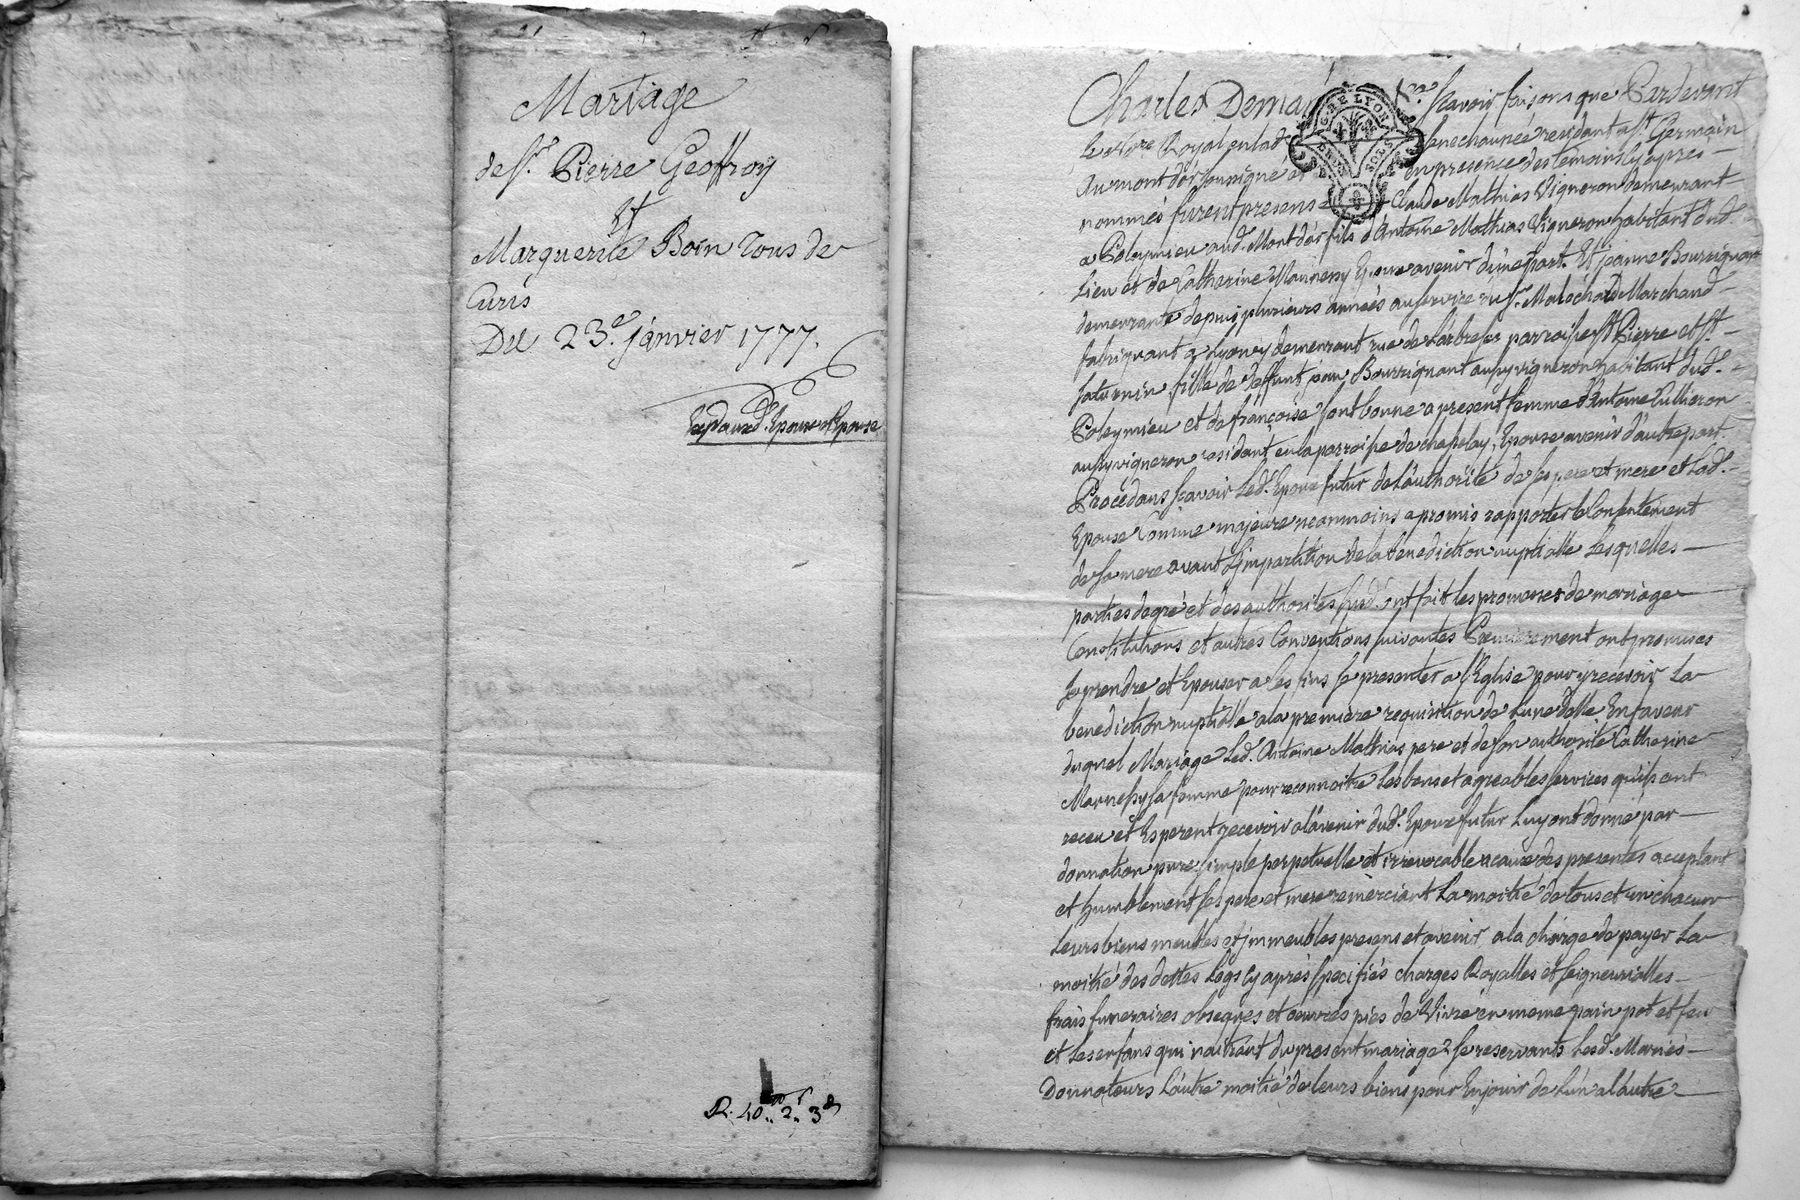 Mariage
de Sr. Pierre Geoffroy
Et
Marguerite Boin tous de
Curis
Du 23e. janvier 1777.
Exp. auxd. Epoux et Epouse
R. 40.. 2.. 3d
Charles Demar Scavoir faisons que Pardevant
le Nore Royal en lad. Senechaussée residant a St. Germain
GNRE LYON
Au mont d'or soussigné et en presence des temoins cy apres
nommés furent presens Claude Mathias Vigneron demeurant
a Poleymieu aud. Mont d'or fils d'Antoine Mathias Vigneron habitant dud.
Lieu et de Catherine Epoux avenir d'une part. Et jeanne Bourrignon
demeurante depuis plusieurs années au service du Sr. Marchand
fabriquant a Lyon y demeurant rue de Larbresse parroisse St Pierre et St
saturnin fille de deffunt Bourrignant aussy vigneron habitant dud.
Poleymieu et de françoise font bonne a present femme d'Antoine
aussy vigneron residant en la parroisse de chasselay, Epouse avenir d'autre part.
Procédans scavoir led. Epoux futur de l'authorité de ses pere et mere et lad.
Epouse comme majeure neanmoins a promis rapporter le Consentement
de sa mere avant L'impartition de la benediction nuptialle Lesquelles
parties de gré et des authorités susd. ont fait les promesses de mariage
Constitutions et autres Conventions suivantes Premierement ont promis
se prendre et Epouser a ces fins se presenter a l'Eglise pour y recevoir La
benediction nuptialle a la premiere requisition de L'une d'elle En faveur
duquel Mariage Led. Antoine Mathias pere et de son authorité Catherine
sa femme pour reconnoitre Les bons et agreables services qu'ils ont
receu et Esperent recevoir a l'avenir dud. Epoux futur Luy ont donné par
donnation pure simple perpetuelle et irrevocable a cause des presentes acceptant
et humblement ses pere et mere remerciant La moitié de tous et un chacun
Leurs biens meubles et jmmeubles presens et avenir, a la charge de payer La
moitié des dettes Legs cy après specifiés charges Royalles et seigneurialles
frais funeraires obseques et oeuvres pies de Vivre en meme pain pot et feu
et Les enfans qui naitront du present mariage se reservants Lesd. Mariés
Donnateurs L'autre moitié de leurs biens pour En jouir de L'un a l'autre